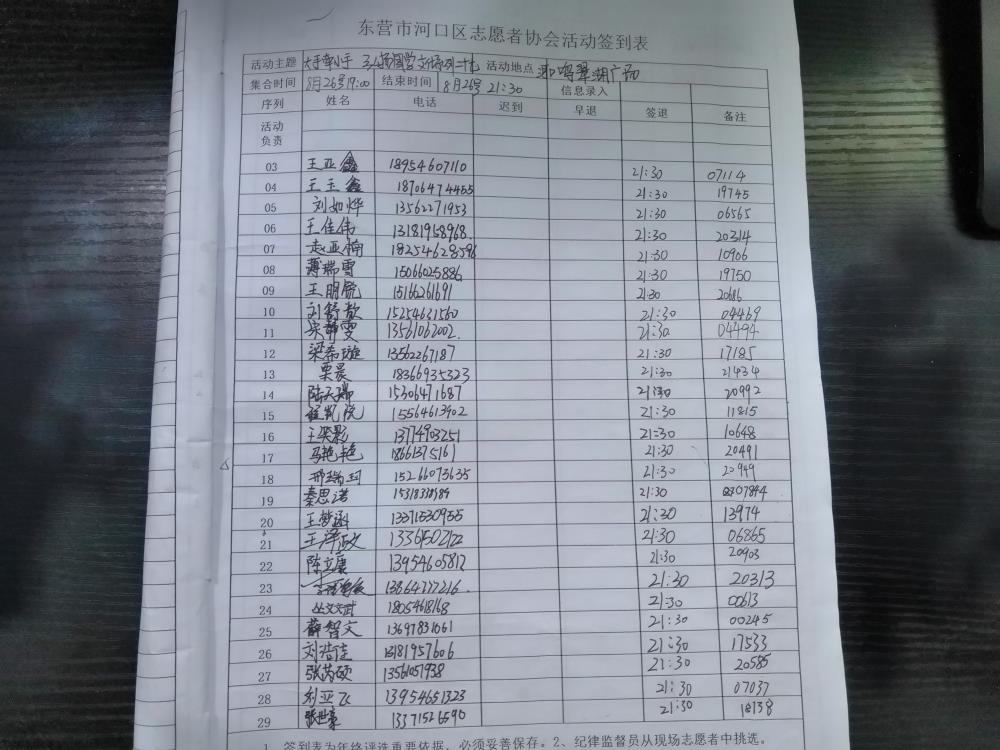 东营市河口区志愿者协会活动签到表
活动主题 大手牵小手 活动地点 湖广场
集合时间 8月26号19:00 结束时间 8月26号 21:30 信息录入
序列 姓名 电话 迟到 早退 签退 备注
活动
负责
03 王亚鑫 18954607110 21:30 07114
04 王玉鑫 18706474455 21:30 19745
05 刘如烨 13562271953 21:30 06565
06 王佳伟 13181958968 21:30 20314
07 赵亚楠 18254628596 21:30 10906
08 薄瑞雪 15066025886 21:30 19750
09 王朋悦 15166261691 21:30 20686
10 刘舒歆 15254631560 21:30 04469
11 宋静雯 13561062002 21:30 04494
12 梁希璇 13562267187 21:30 17185
13 栗晨 18366935323 21:30 21434
14 陆天瑞 15306471687 21:30 20992
15 程凯悦 15564613902 21:30 11815
16 王奕影 13774903251 21:30 10648
17 马艳艳 18661375161 21:30 20491
18 邢瑞珂 15266073635 21:30 20949
19 秦思诺 21:30 07844
20 王梦涵 13371530955 21:30 13974
21 王泽政 13361502122 21:30 06865
22 陈立康 13954605812 21:30 20903
23 13864777216 21:30 20313
24 丛文武 18054618168 21:30 00613
25 薛智文 13697831061 21:30 00245
26 刘浩佳 13181957606 21:30 17533
27 张芮硕 13561051938 21:30 20585
28 刘亚飞 13954651323 21:30 07037
29 张世豪 13371526590 21:30 18138
1、签到表为年终评选重要依据，必须妥善保存。2、纪律监督员从现场志愿者中挑选。